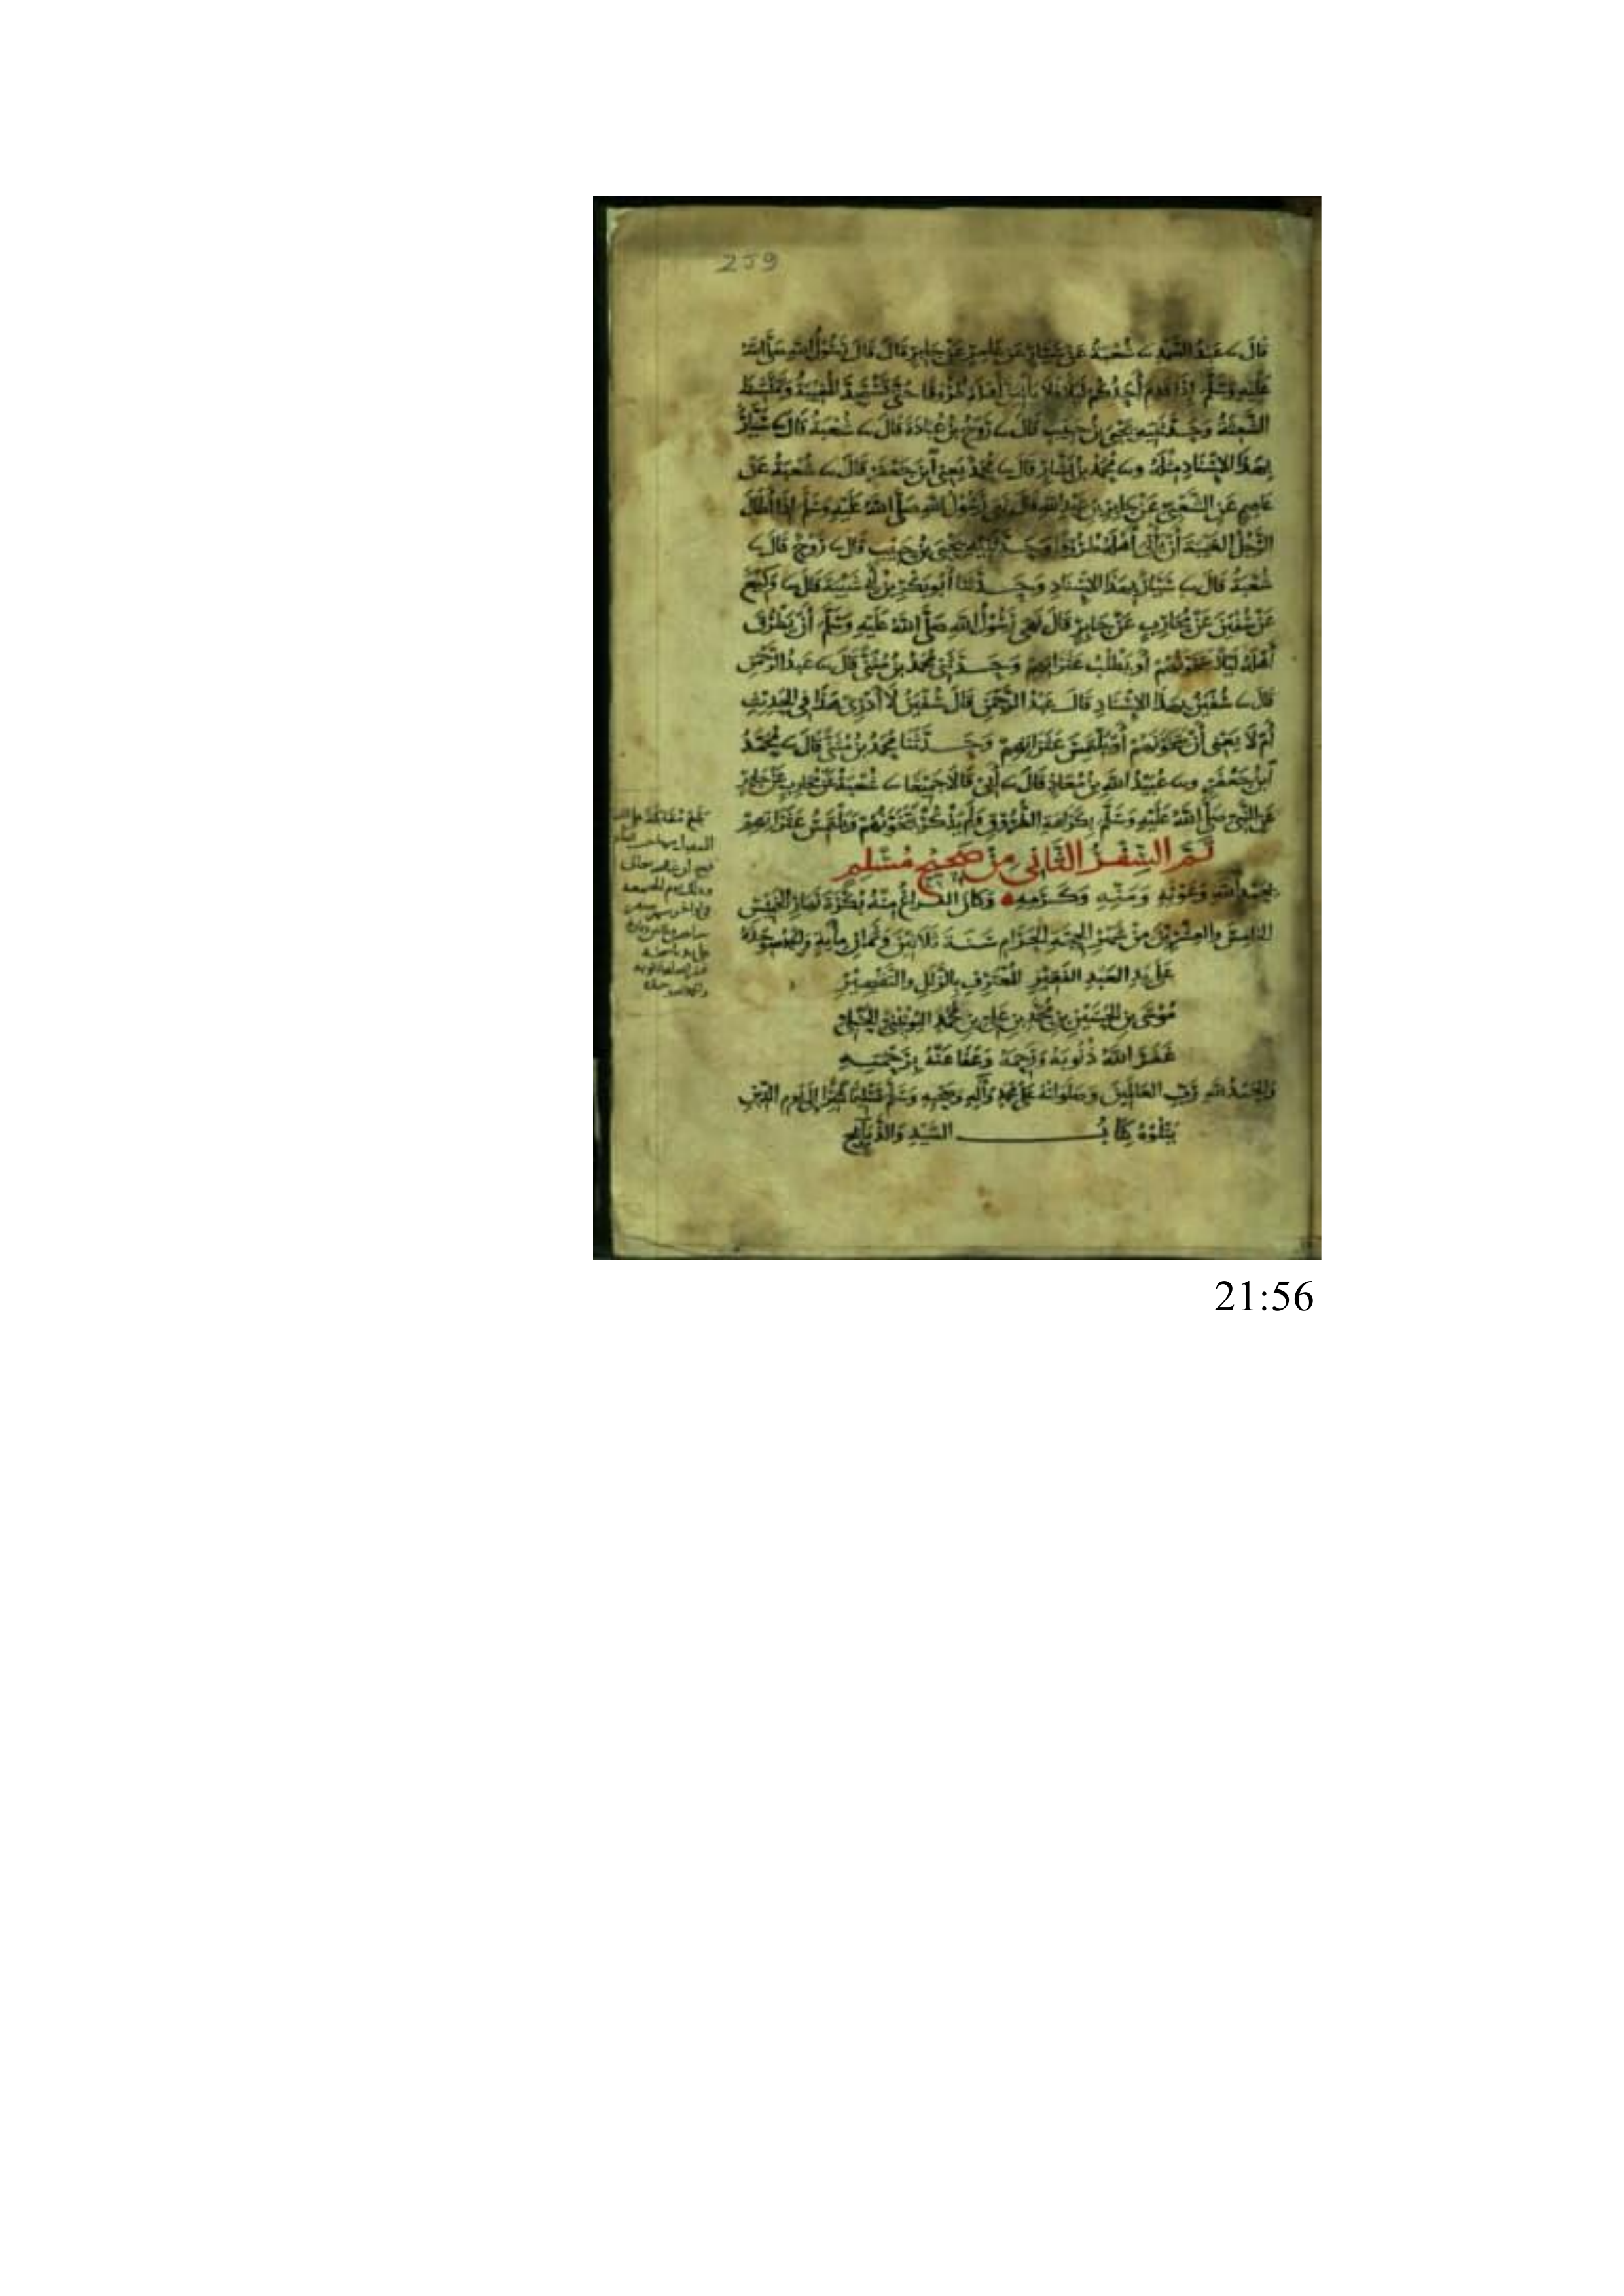 259
قال ثنا عبد الصمد ثنا شعبة عن سيار عن عامر عن جابر قال قال رسول الله صلى الله
عليه وسلم إذا قدم أحدكم ليلا فلا يأتين أهله طروقا حتى تستحد المغيبة وتمتشط
الشعثة وحدثنيه يحيى بن حبيب قال ثنا روح بن عبادة قال ثنا شعبة قال ثنا سيار
بهذا الإسناد مثله وثنا محمد بن بشار قال ثنا محمد يعني ابن جعفر قال ثنا شعبة عن
عاصم عن الشعبي عن جابر بن عبد الله قال نهى رسول الله صلى الله عليه وسلم إذا أطال
الرجل الغيبة أن يأتي أهله طروقا وحدثنيه يحيى بن حبيب قال ثنا روح قال ثنا
شعبة قال ثنا سيار بهذا الإسناد وحدثنا أبو بكر بن أبي شيبة قال ثنا وكيع
عن سفين عن محارب عن جابر قال نهى رسول الله صلى الله عليه وسلم أن يطرق
أهله ليلا يتخونهم أو يطلب عثراتهم وحدثني محمد بن مثنى قال ثنا عبد الرحمن
قال ثنا سفين بهذا الإسناد قال عبد الرحمن قال سفين لا أدري هذا في الحديث
أم لا يعني أن يتخونهم أو يلتمس عثراتهم وحدثنا محمد بن مثنى قال ثنا محمد
ابن جعفر وثنا عبيد الله بن معاذ قال ثنا أبي قالا جميعا ثنا شعبة عن محارب عن جابر
عن النبي صلى الله عليه وسلم بكراهة الطروق ولم يذكر يتخونهم ويلتمس عثراتهم
تم السفر الثاني من صحيح مسلم
بحمد الله وعونه ومنه وكرمه وكان الفراغ منه بكرة نهار الخميس
والعشرين من شهر الحجة الحرام سنة ثلاثين وثمان مأية والحمد لله وحده
على يد العبد الفقير المعترف بالزلل والتقصير
موسى بن الحسين بن محمد بن علي بن محمد اليونيني الحنبلي
غفر الله ذنوبه ورحمه وعفا عنه برحمته
والحمد لله رب العالمين وصلواته على محمد وآله وصحبه وسلم تسليما كثيرا إلى يوم الدين
يتلوه كتاب الصيد والذبايح
بلغ مقابلة على
وذلك يوم الجمعة
21:56